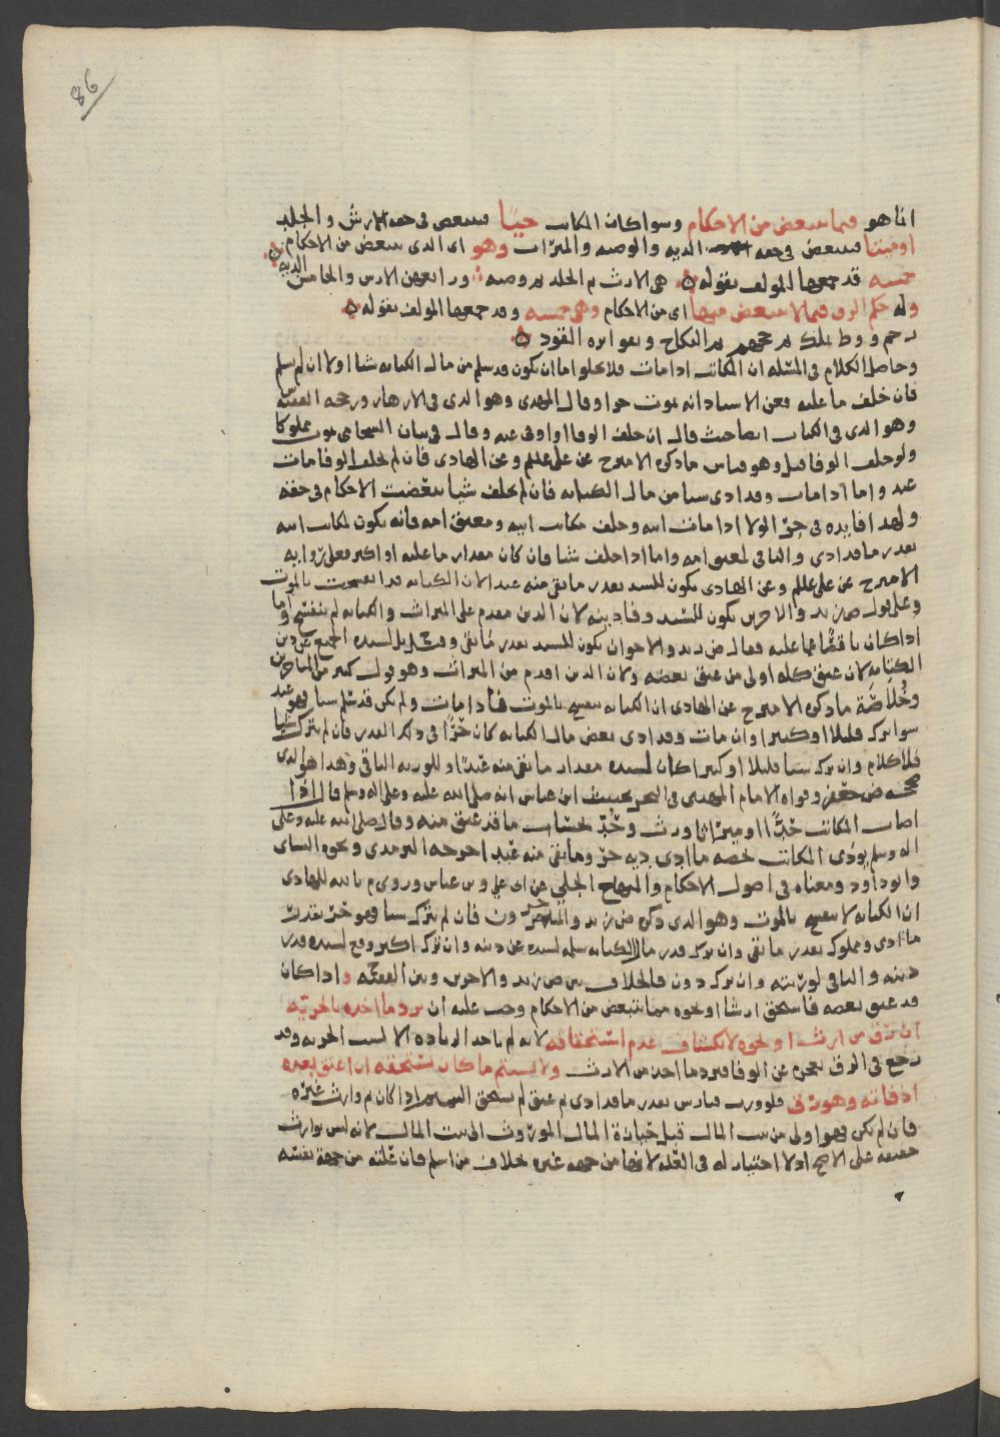 86
انما هو فيما يتبعض من الاحكام وسوا كان المكاتب حيًا فيتبعض في حقه الارش والجلد
اوميتا فيتبعض في حقه الديه والوصيه والميراث وهو اى الذى يتبعض من الاحكام
خمسه قد جمعها المولف بقوله هى الارث ثم الجلد ثم وصيه ورابعهن الارش والخامس الديه
وله حكم الرق فيما لا يتبعض فيها اى من الاحكام وهى خمسه وقد جمعها المولف بقوله
رجم ووط بملك ثم حجهم ثم النكاح القود
وحاصل الكلام فى المسئله ان المكاتب اذا مات فلا يخلوا اما ان يكون قد سلم من مال الكتابه شيا اولا ان لم يسلم
فان خلف ما عليه فعن الاستاد انه يموت حرا وقال المهدى وهو الذى فى الازهار ورجحه الفقيه
وهو الذى فى الكتاب ايضا حيث قال ان خلف الوفا او اوفى عنه وقال فى بيان يموت مملوكا
ولو خلف الوفا قيل وهو قياس ما ذكره الامير ح عن على عليلم وعن الهادى فان لم يخلف الوفا مات
عبد واما اذا مات وقد ادى شيا من مال الكتابه فان لم يخلف شيا تبعضت الاحكام فى حقه
ولهذا فايده فى جر الولا اذا مات ابنه وخلف مكاتب ابيه ومعتق امه فانه يكون لمكاتب ابيه
بقدر ما قد ادى والباقى لمعتق امه واما اذا خلف شيا فان كان مقدار ما عليه او اكثر فعلى روايه
الامير ح عن على عليلم وعن الهادى يكون للسيد بقدر ما بقى منه عبد الان الكتابه قد انفسخت بالموت
وعلى قول ض زيد والاخرين يكون للسيد وفا دينه لان الدين مقدم على الميراث والكتابه لم تنفسخ واما
اذا كان ناقصًا عما عليه فقال ض زيد والاخوان يكون للسيد بقدر ما بقى وقيل بل لسيده الجميع عن دين
الكتابه لان عتق كله اولى من عتق بعضه ولان الدين اقدم من الميراث وهو قول كثير من المتاخرين
وخُلاصَة ما ذكره الامير ح عن الهادى ان الكتابه تنفسخ بالموت فاذا مات ولم يكن قد سلم شيا فهو عبد
سوا ترك قليلا او كثيرا وان مات وقد ادى بعض مال الكتابه كان حرًا فى ذلك القدر فان لم يترك شيا
فلا كلام وان ترك شيا قليلا او كثيرا كان لسيده مقدار ما بقى منه عبدًا وللورثه الباقى وهذا هو الذى
صححه ض جعفر وقواه الامام المهدى فى البحر بحديث ابن عباس انه صلى الله عليه وعلى اله وسلم قال اذا
اصاب المكاتب حدًا او ميراثا ورث وحُدّ بحساب ما قد عتق منه وقال صلى الله عليه وعلى
اله وسلم يؤدى المكاتب بحصه ما ادى ديه حر وما بقى منه عبد اخرجه الترمدى ونحوه النساى
وابوداود ومعناه فى اصول الاحكام والمنهاج الجلي عن على وبن عباس وروى م بالله للهادى
ان الكتابه لا تنفسخ بالموت وهو الذى ذكره ض زيد والمتاخرون فان لم يترك شيا فهو حر بقدر
ما ادى ومملوك بقدر ما بقى وان ترك قدر مال الكتابه سلم لسيده عن دينه وان ترك اكثر دفع لسيده قدر
دينه والباقى لورثته وان ترك دون فالخلاف بين ض زيد والاخرين وبين الفقيه واذا كان
قد عتق بعضه فاستحق ارشا او نحوه مما يتبعض من الاحكام وجب عليه ان يرد ما اخذه بالحريّه
ان رق من ارث او نحوه لانكشاف عدم استحقاقه لانه لم ياخذ الزياده الا لسبب الحريه وقد
رجع فى الرق بعجزه عن الوفا فيرد ما اخذ من الارث ولا يستتم ما كان يستحقه ان اعتق بعده
اذ فاته وهو رق فلو ورث قيادس بقدر ما قد ادى ثم عتق لم يستحق التتميم اذا كان ثم وارث غيره
فان لم يكن فهو اولى من بيت المال قبل حيازة المال الموروث الى بيت المال لانه ليس بوارث
حقيقه على الاصح اولا اختيار له فى العله لانها من جهه غيره خلاف من اسلم فان علته من جهة نفسه